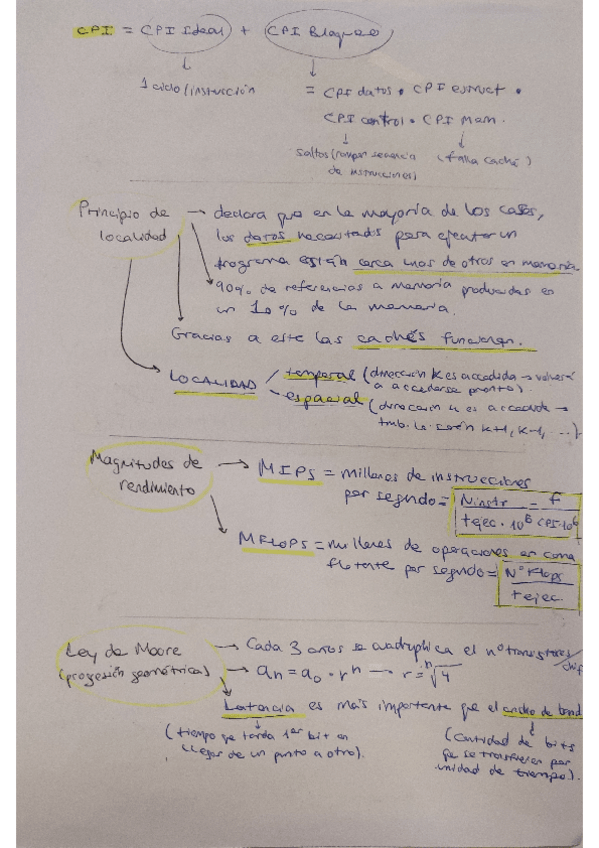 CPI = CPI Ideal + CPI Bloqueo
1 ciclo/instrucción
= CPI datos · CPI estruct ·
CPI control · CPI mem.
saltos (romper secuencia
de instrucciones)
(falla caché)
Principio de
localidad
→ declara que en la mayoría de los casos,
los datos necesitados para ejecutar un
programa están cerca unos de otros en memoria
90% de referencias a memoria producidas en
un 10% de la memoria.
Gracias a este las cachés funcionan.
LOCALIDAD
temporal (dirección K es accedida → volverá
a accederse pronto)
espacial (dirección K es accedida →
tmb. lo serán K+1, K-1, ...)
Magnitudes de
rendimiento
→ MIPS = millones de instrucciones
por segundo = N instr / tejec. · 10^6 = f / CPI·10^6
MFLOPS = millones de operaciones en coma
flotante por segundo = Nº Flops / tejec.
Ley de Moore
(progresión geométrica)
→ Cada 3 años se cuadruplica el nº transistores/chip
→ an = a0 · r^n — r = ⁿ√4
Latencia es más importante que el ancho de band
(tiempo que tarda 1er bit en
llegar de un punto a otro).
(cantidad de bits
que se transfieren por
unidad de tiempo).